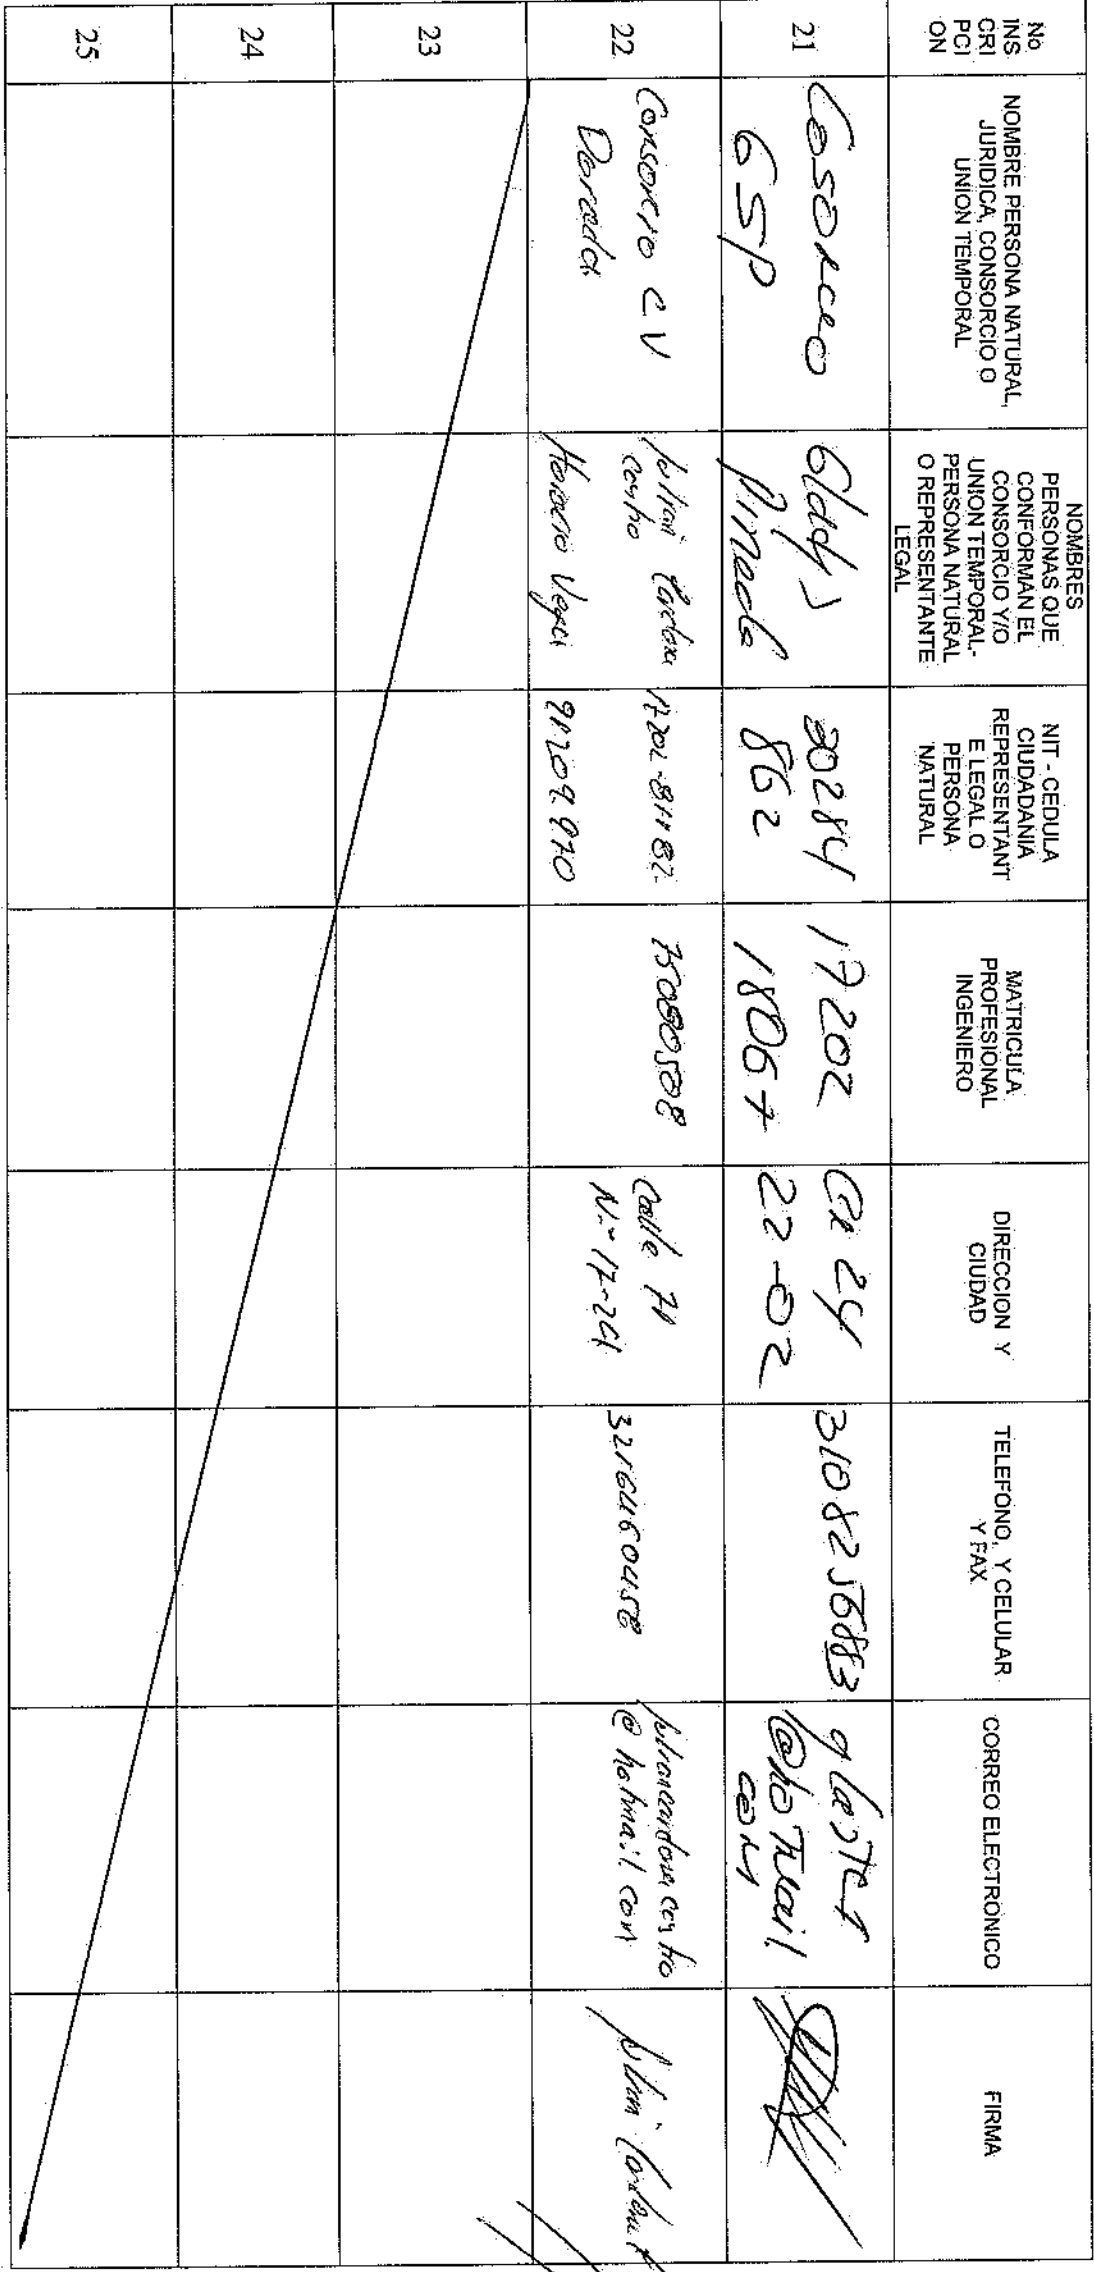 No
INS
CRI
PCI
ON
NOMBRE PERSONA NATURAL,
JURIDICA, CONSORCIO O
UNION TEMPORAL
NOMBRES
PERSONAS QUE
CONFORMAN EL
CONSORCIO Y/O
UNION TEMPORAL-
PERSONA NATURAL
O REPRESENTANTE
LEGAL
NIT - CEDULA
CIUDADANIA
REPRESENTANT
E LEGAL O
PERSONA
NATURAL
MATRICULA
PROFESIONAL
INGENIERO
DIRECCION Y
CIUDAD
TELEFONO, Y CELULAR
Y FAX
CORREO ELECTRONICO
FIRMA
21
GSP
Gladys
Pineda
30284
862
17202
18067
CR 24
22-02
3108256883
@hotmail
com
22
Consorcio CV
Dorada
Julian Cardona
castro
Horacio Vega
17202-81182-
91209.970
75080508
Calle 71
N.º 17-24
3216460458
juliancardonacastro
@hotmail.com
Julian Cardona
23
24
25